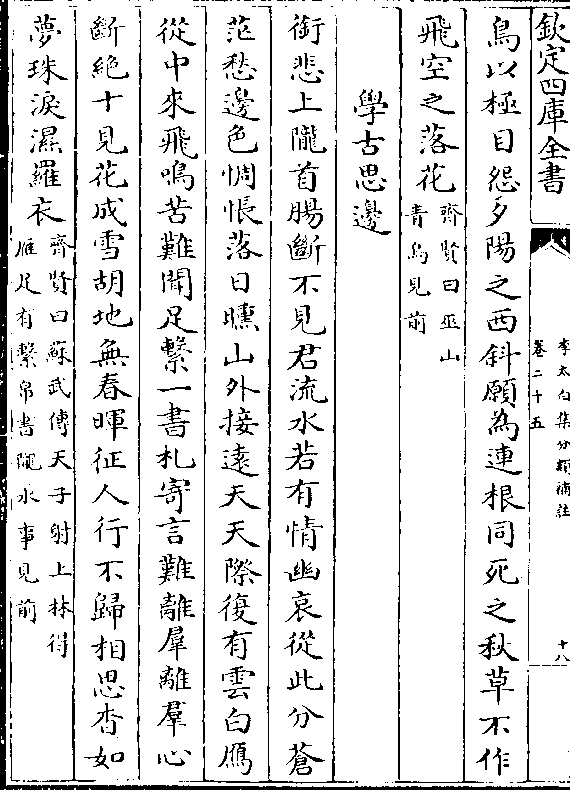 欽定四庫全書
李太白集分類補註
卷二十五
十八
鳥以極目怨夕陽之西斜願為連根同死之秋草不作
飛空之落花
齊賢曰巫山
青鳥見前
學古思邊
銜悲上隴首腸斷不見君流水若有情幽哀從此分蒼
茫愁邊色惆悵落日曛山外接遠天天際復有雲白鴈
從中來飛鳴苦難聞足繫一書札寄言難離羣離羣心
斷絶十見花成雪胡地無春暉征人行不歸相思杳如
夢珠淚濕羅衣
齊賢曰蘇武傳天子射上林得
雁足有繫帛書隴水事見前